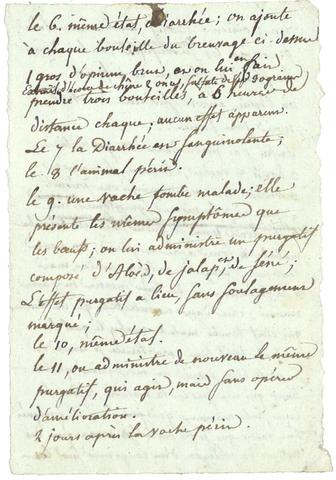 le 6. même état, diarrhée; on ajoute
à chaque bouteille du breuvage ci-dessus
1 gros d'opium brut, et on lui en fait
Extrait d'écorce de chêne 2 onces, sulfate de fer
prendre trois bouteilles, à 6 heures de
distance chaque. aucun effet apparent.
Le 7 la Diarrhée est sanguinolente;
le 8 l'animal périt.
le 9. une vache tombe malade; elle
présente les mêmes symptômes que
les bœufs; on lui administre un purgatif
composé d'Aloès, de jalap, et de séné;
L'effet purgatif a lieu, sans soulagement
marqué;
le 10, même état.
le 11, on administre de nouveau le même
purgatif, qui agit, mais sans opérer
d'amélioration.
2 jours après la vache périt.